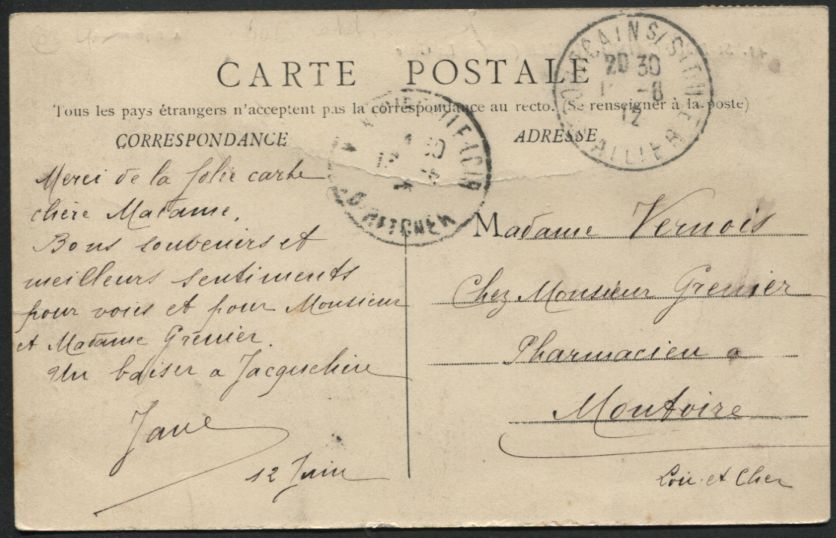 CARTE POSTALE
Tous les pays étrangers n'acceptent pas la correspondance au recto. (Se renseigner à la poste)
CORRESPONDANCE
Merci de la jolie carte
chère Madame.
Bons souvenirs et
meilleurs sentiments
pour vous et pour Monsieur
et Madame Grenier.
Un baiser a Jacqueline
Jane
12 Juin
ADRESSE
Madame Vernois
Chez Monsieur Grenier
Pharmacien a
Montoire
Loir et Cher
20 30
12
ALLIER